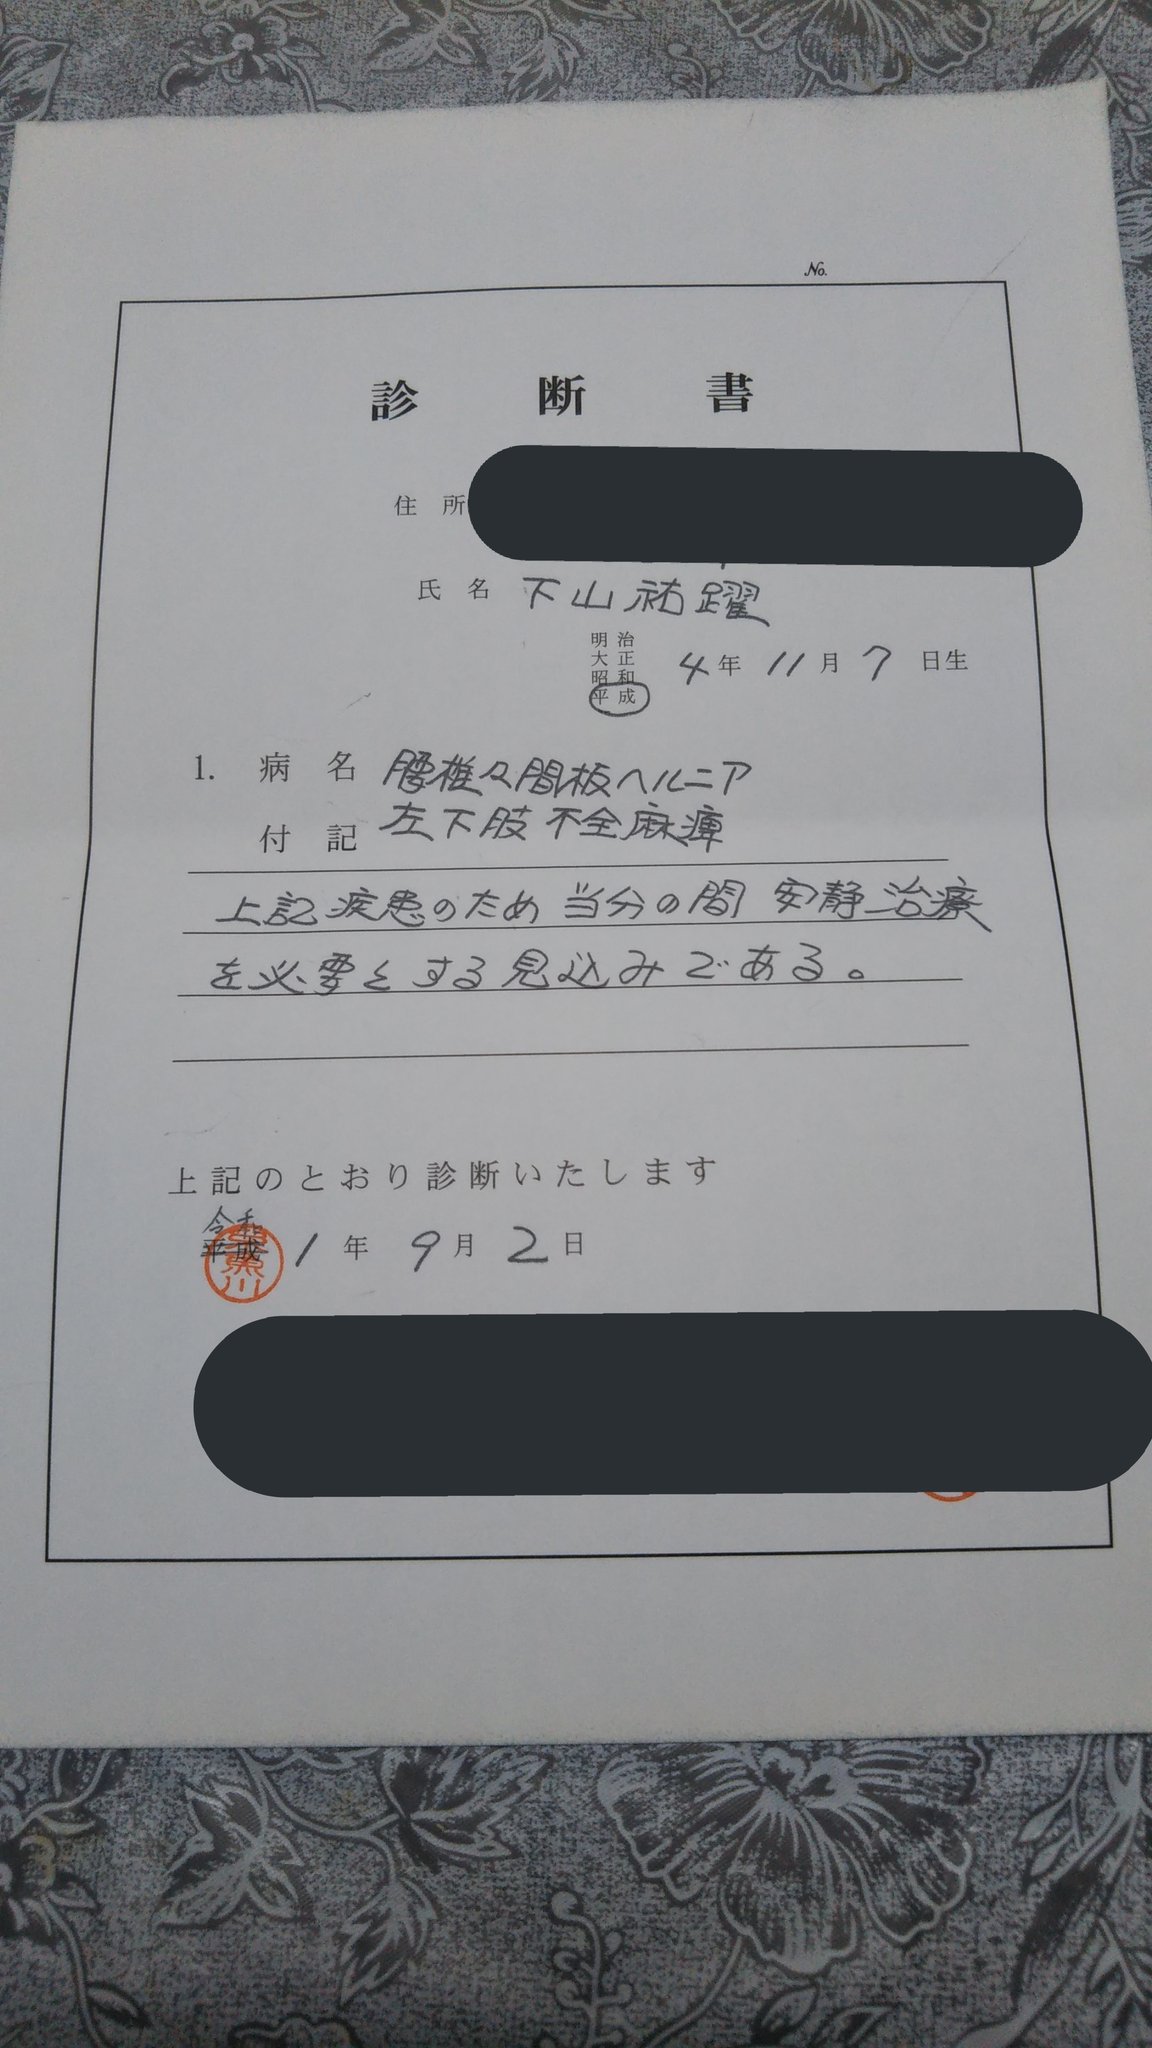 No.
診断書
住所
氏名 下山祐躍
明治
大正
昭和
平成
4年11月7日生
1. 病名 腰椎々間板ヘルニア
付記 左下肢不全麻痺
上記疾患のため当分の間 安静治療
を必要とする見込みである。
上記のとおり診断いたします
令和
平成 1年9月2日